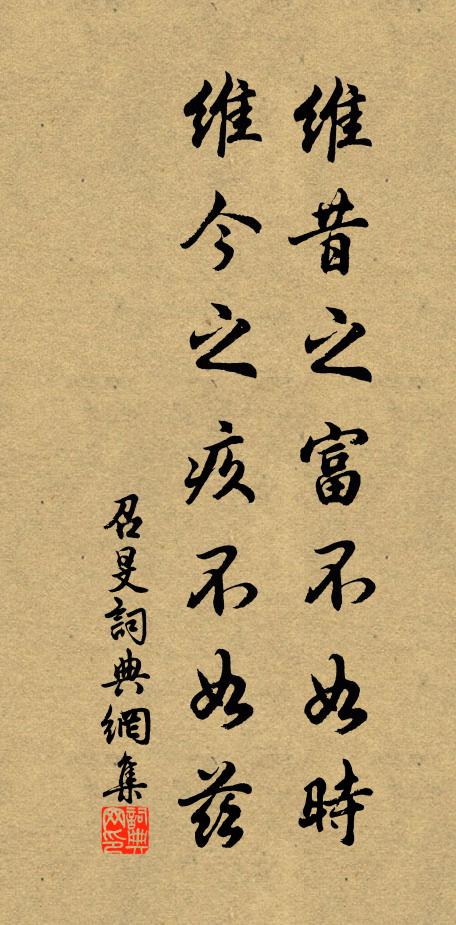 維昔之富不如時
維今之疚不如茲
召旻詞典網集
詞典网印